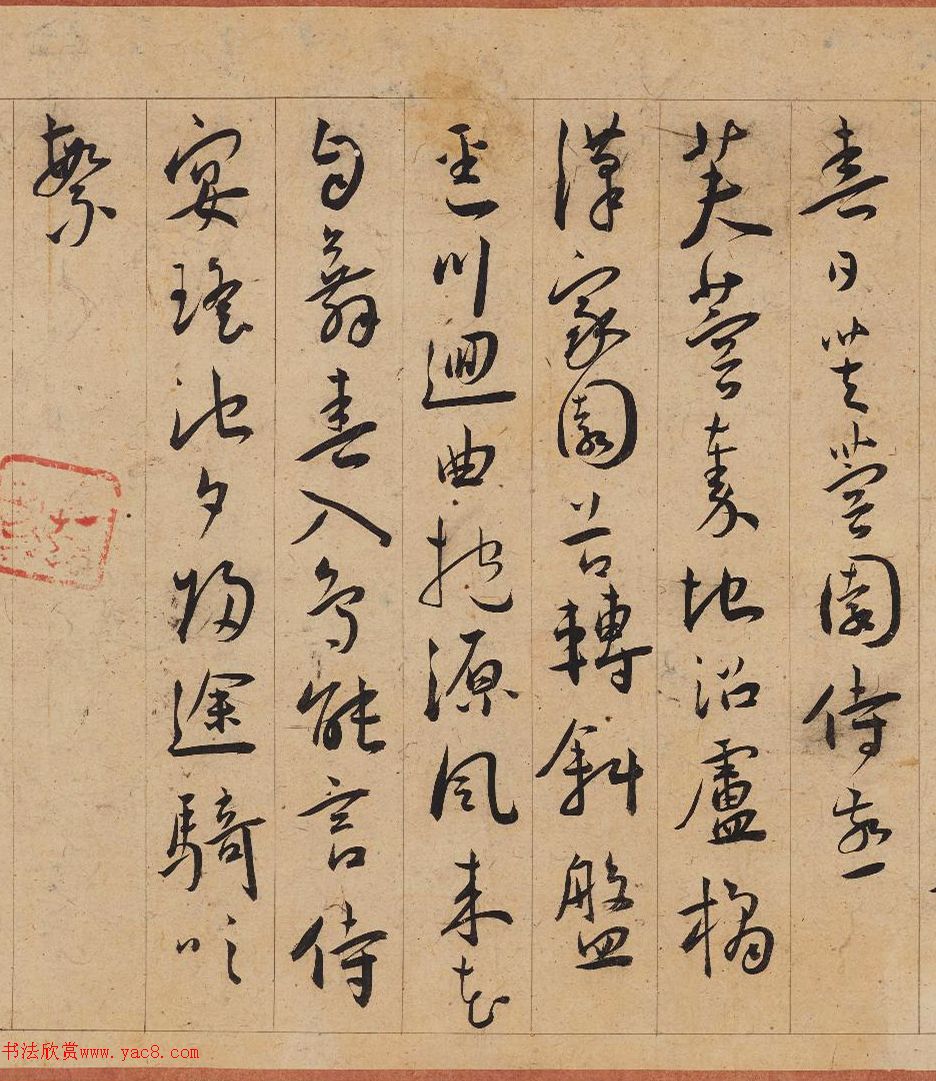 春日芙蓉園侍
芙蓉秦地沼盧橘
漢家園谷轉斜盤
徑川迴曲抱源風來花
自舞春入鳥能言侍
宴瑤池夕歸途騎吹
繁
书法欣赏www.yac8.com